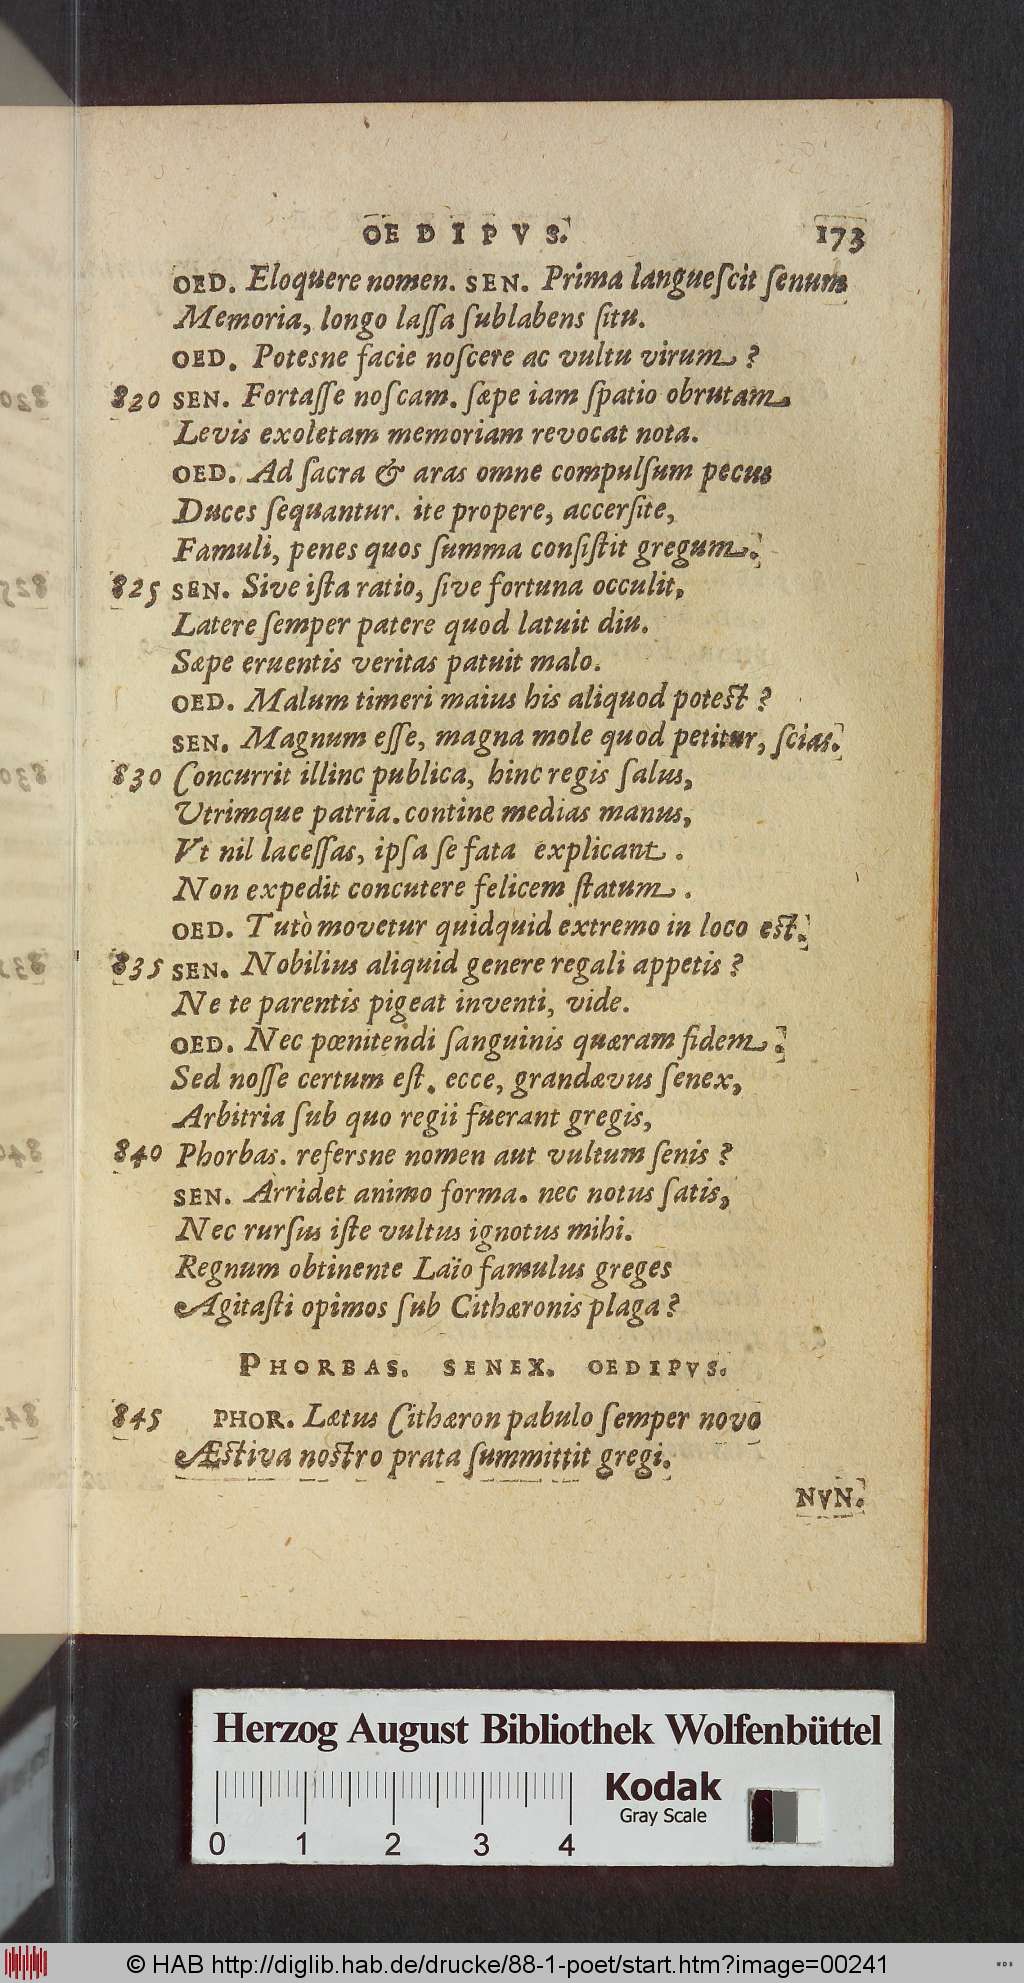 OEDIPVS. 173
OED. Eloquere nomen. SEN. Prima langueſcit ſenum
Memoria, longo laſſa ſublabens ſitu.
OED. Potesne facie noſcere ac vultu virum?
820 SEN. Fortaſſe noſcam. ſæpe iam ſpatio obrutam
Levis exoletam memoriam revocat nota.
OED. Ad ſacra & aras omne compulſum pecus
Duces ſequantur. ite propere, accerſite,
Famuli, penes quos ſumma conſiſtit gregum.
825 SEN. Sive iſta ratio, ſive fortuna occulit,
Latere ſemper patere quod latuit diu.
Sæpe eruentis veritas patuit malo.
OED. Malum timeri maius his aliquod poteſt?
SEN. Magnum eſſe, magna mole quod petitur, ſcias.
830 Concurrit illinc publica, hinc regis ſalus,
Utrimque patria. contine medias manus,
Vt nil laceſſas, ipſa ſe fata explicant.
Non expedit concutere felicem ſtatum.
OED. Tutò movetur quidquid extremo in loco eſt.
835 SEN. Nobilius aliquid genere regali appetis?
Ne te parentis pigeat inventi, vide.
OED. Nec pœnitendi ſanguinis quæram fidem.
Sed noſſe certum eſt. ecce, grandævus ſenex,
Arbitria ſub quo regii fuerant gregis,
840 Phorbas. refersne nomen aut vultum ſenis?
SEN. Arridet animo forma. nec notus ſatis,
Nec rurſus iſte vultus ignotus mihi.
Regnum obtinente Laïo famulus greges
Agitaſti opimos ſub Cithæronis plaga?
PHORBAS. SENEX. OEDIPVS.
845 PHOR. Lætus Cithæron pabulo ſemper novo
Æſtiva noſtro prata ſummittit gregi.
NVN.
Herzog August Bibliothek Wolfenbüttel
Kodak
Gray Scale
0 1 2 3 4
© HAB http://diglib.hab.de/drucke/88-1-poet/start.htm?image=00241